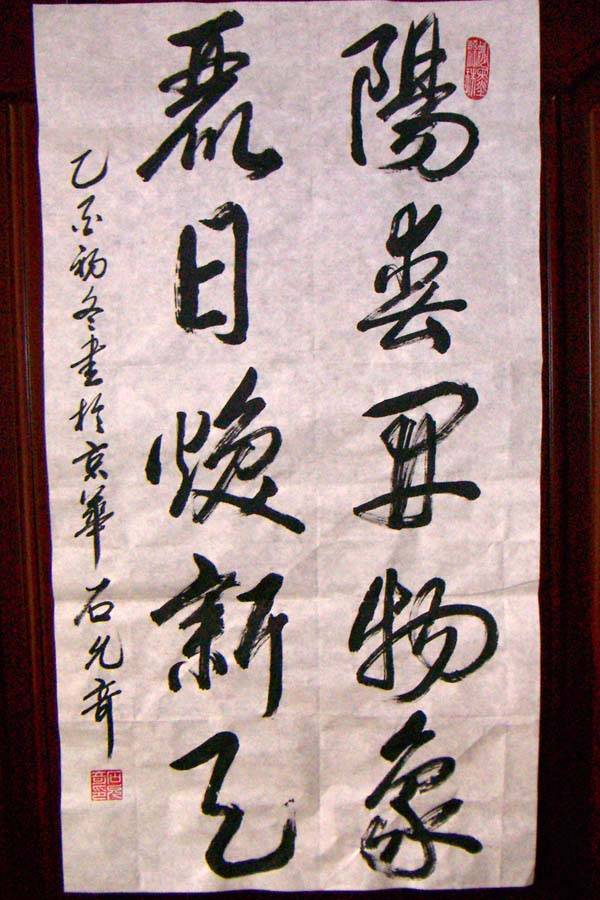 陽春開物象
麗日煥新天
乙酉初冬書於京華 石允奇